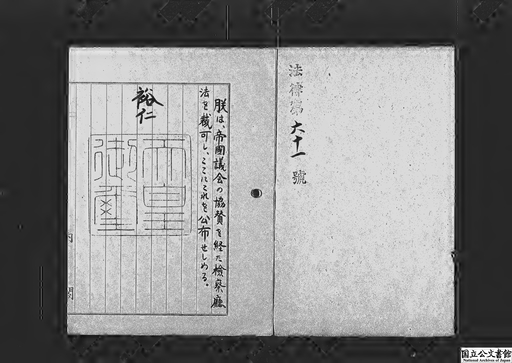 法律第六十一號
朕は、帝國議会の協賛を経た檢察廳
法を裁可し、ここにこれを公布せしめる。
裕仁
天皇御璽
内
閣
国立公文書館
National Archives of Japan